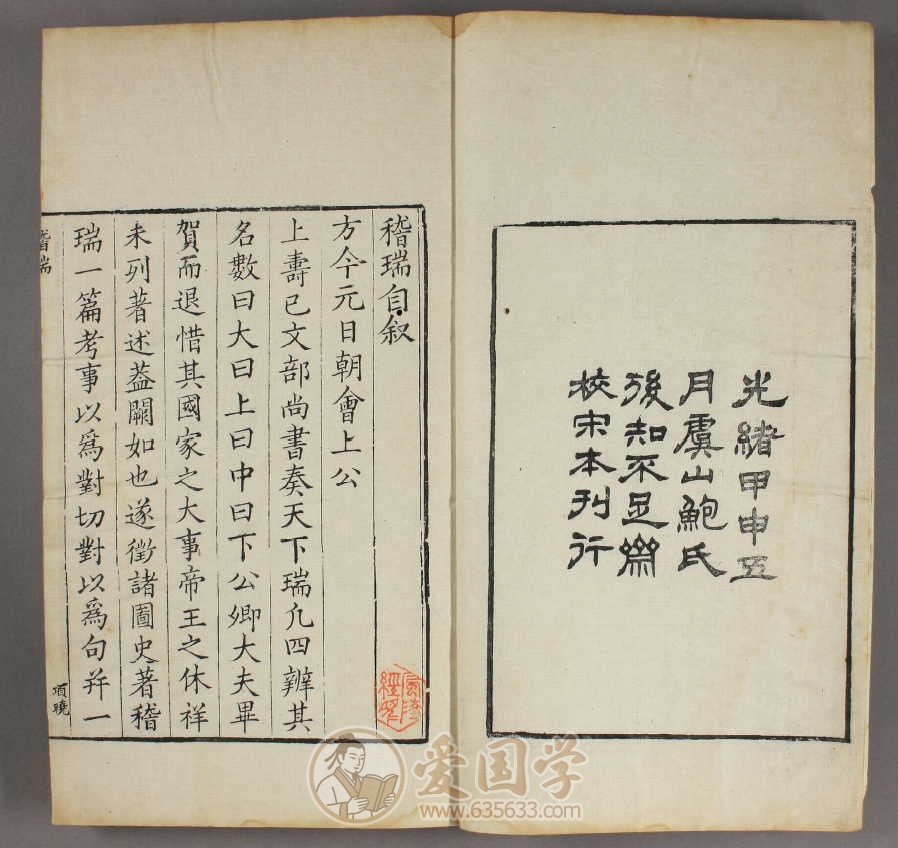 光緒甲申五
月虞山鮑氏
後知不足齋
校宋本刊行
稽瑞自叙
方今元日朝會上公
上壽已文部尚書奏天下瑞凢四辨其
名數曰大曰上曰中曰下公卿大夫畢
賀而退惜其國家之大事帝王之休祥
未列著述葢闕如也遂徵諸圖史著稽
瑞一篇考事以爲對切對以爲句并一
稽瑞
項曉
爱国学
www.635633.com